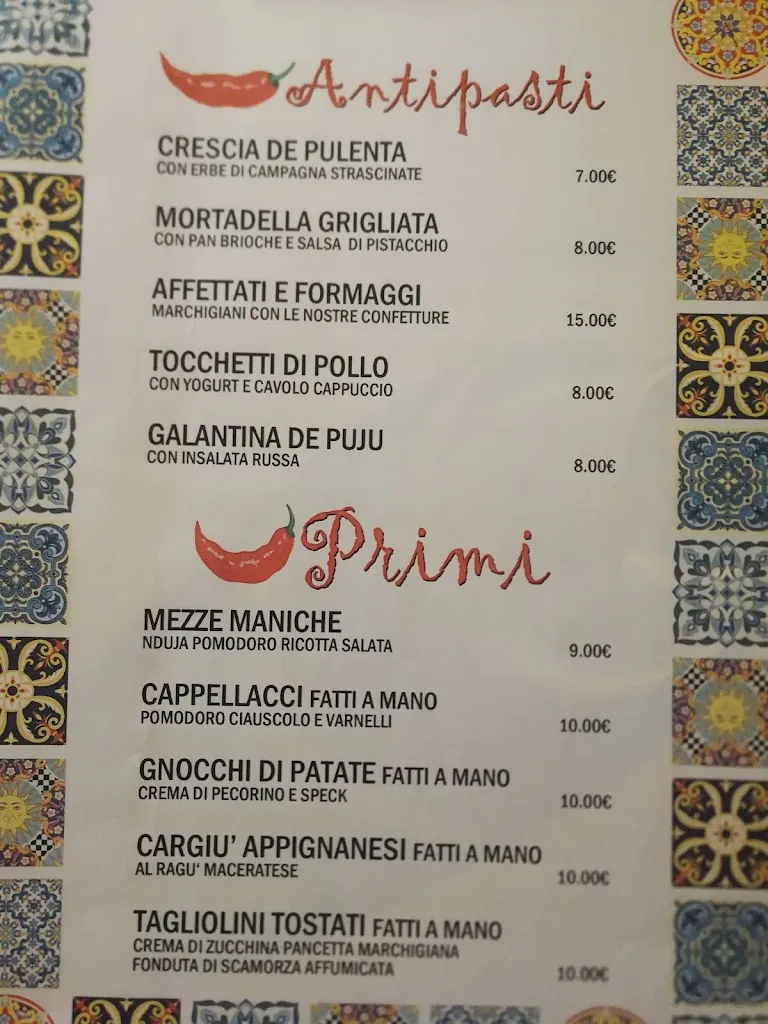 Antipasti
CRESCIA DE PULENTA
CON ERBE DI CAMPAGNA STRASCINATE 7.00€
MORTADELLA GRIGLIATA
CON PAN BRIOCHE E SALSA DI PISTACCHIO 8.00€
AFFETTATI E FORMAGGI
MARCHIGIANI CON LE NOSTRE CONFETTURE 15.00€
TOCCHETTI DI POLLO
CON YOGURT E CAVOLO CAPPUCCIO 8.00€
GALANTINA DE PUJU
CON INSALATA RUSSA 8.00€
Primi
MEZZE MANICHE
NDUJA POMODORO RICOTTA SALATA 9.00€
CAPPELLACCI FATTI A MANO
POMODORO CIAUSCOLO E VARNELLI 10.00€
GNOCCHI DI PATATE FATTI A MANO
CREMA DI PECORINO E SPECK 10.00€
CARGIU' APPIGNANESI FATTI A MANO
AL RAGU' MACERATESE 10.00€
TAGLIOLINI TOSTATI FATTI A MANO
CREMA DI ZUCCHINA PANCETTA MARCHIGIANA
FONDUTA DI SCAMORZA AFFUMICATA 10.00€